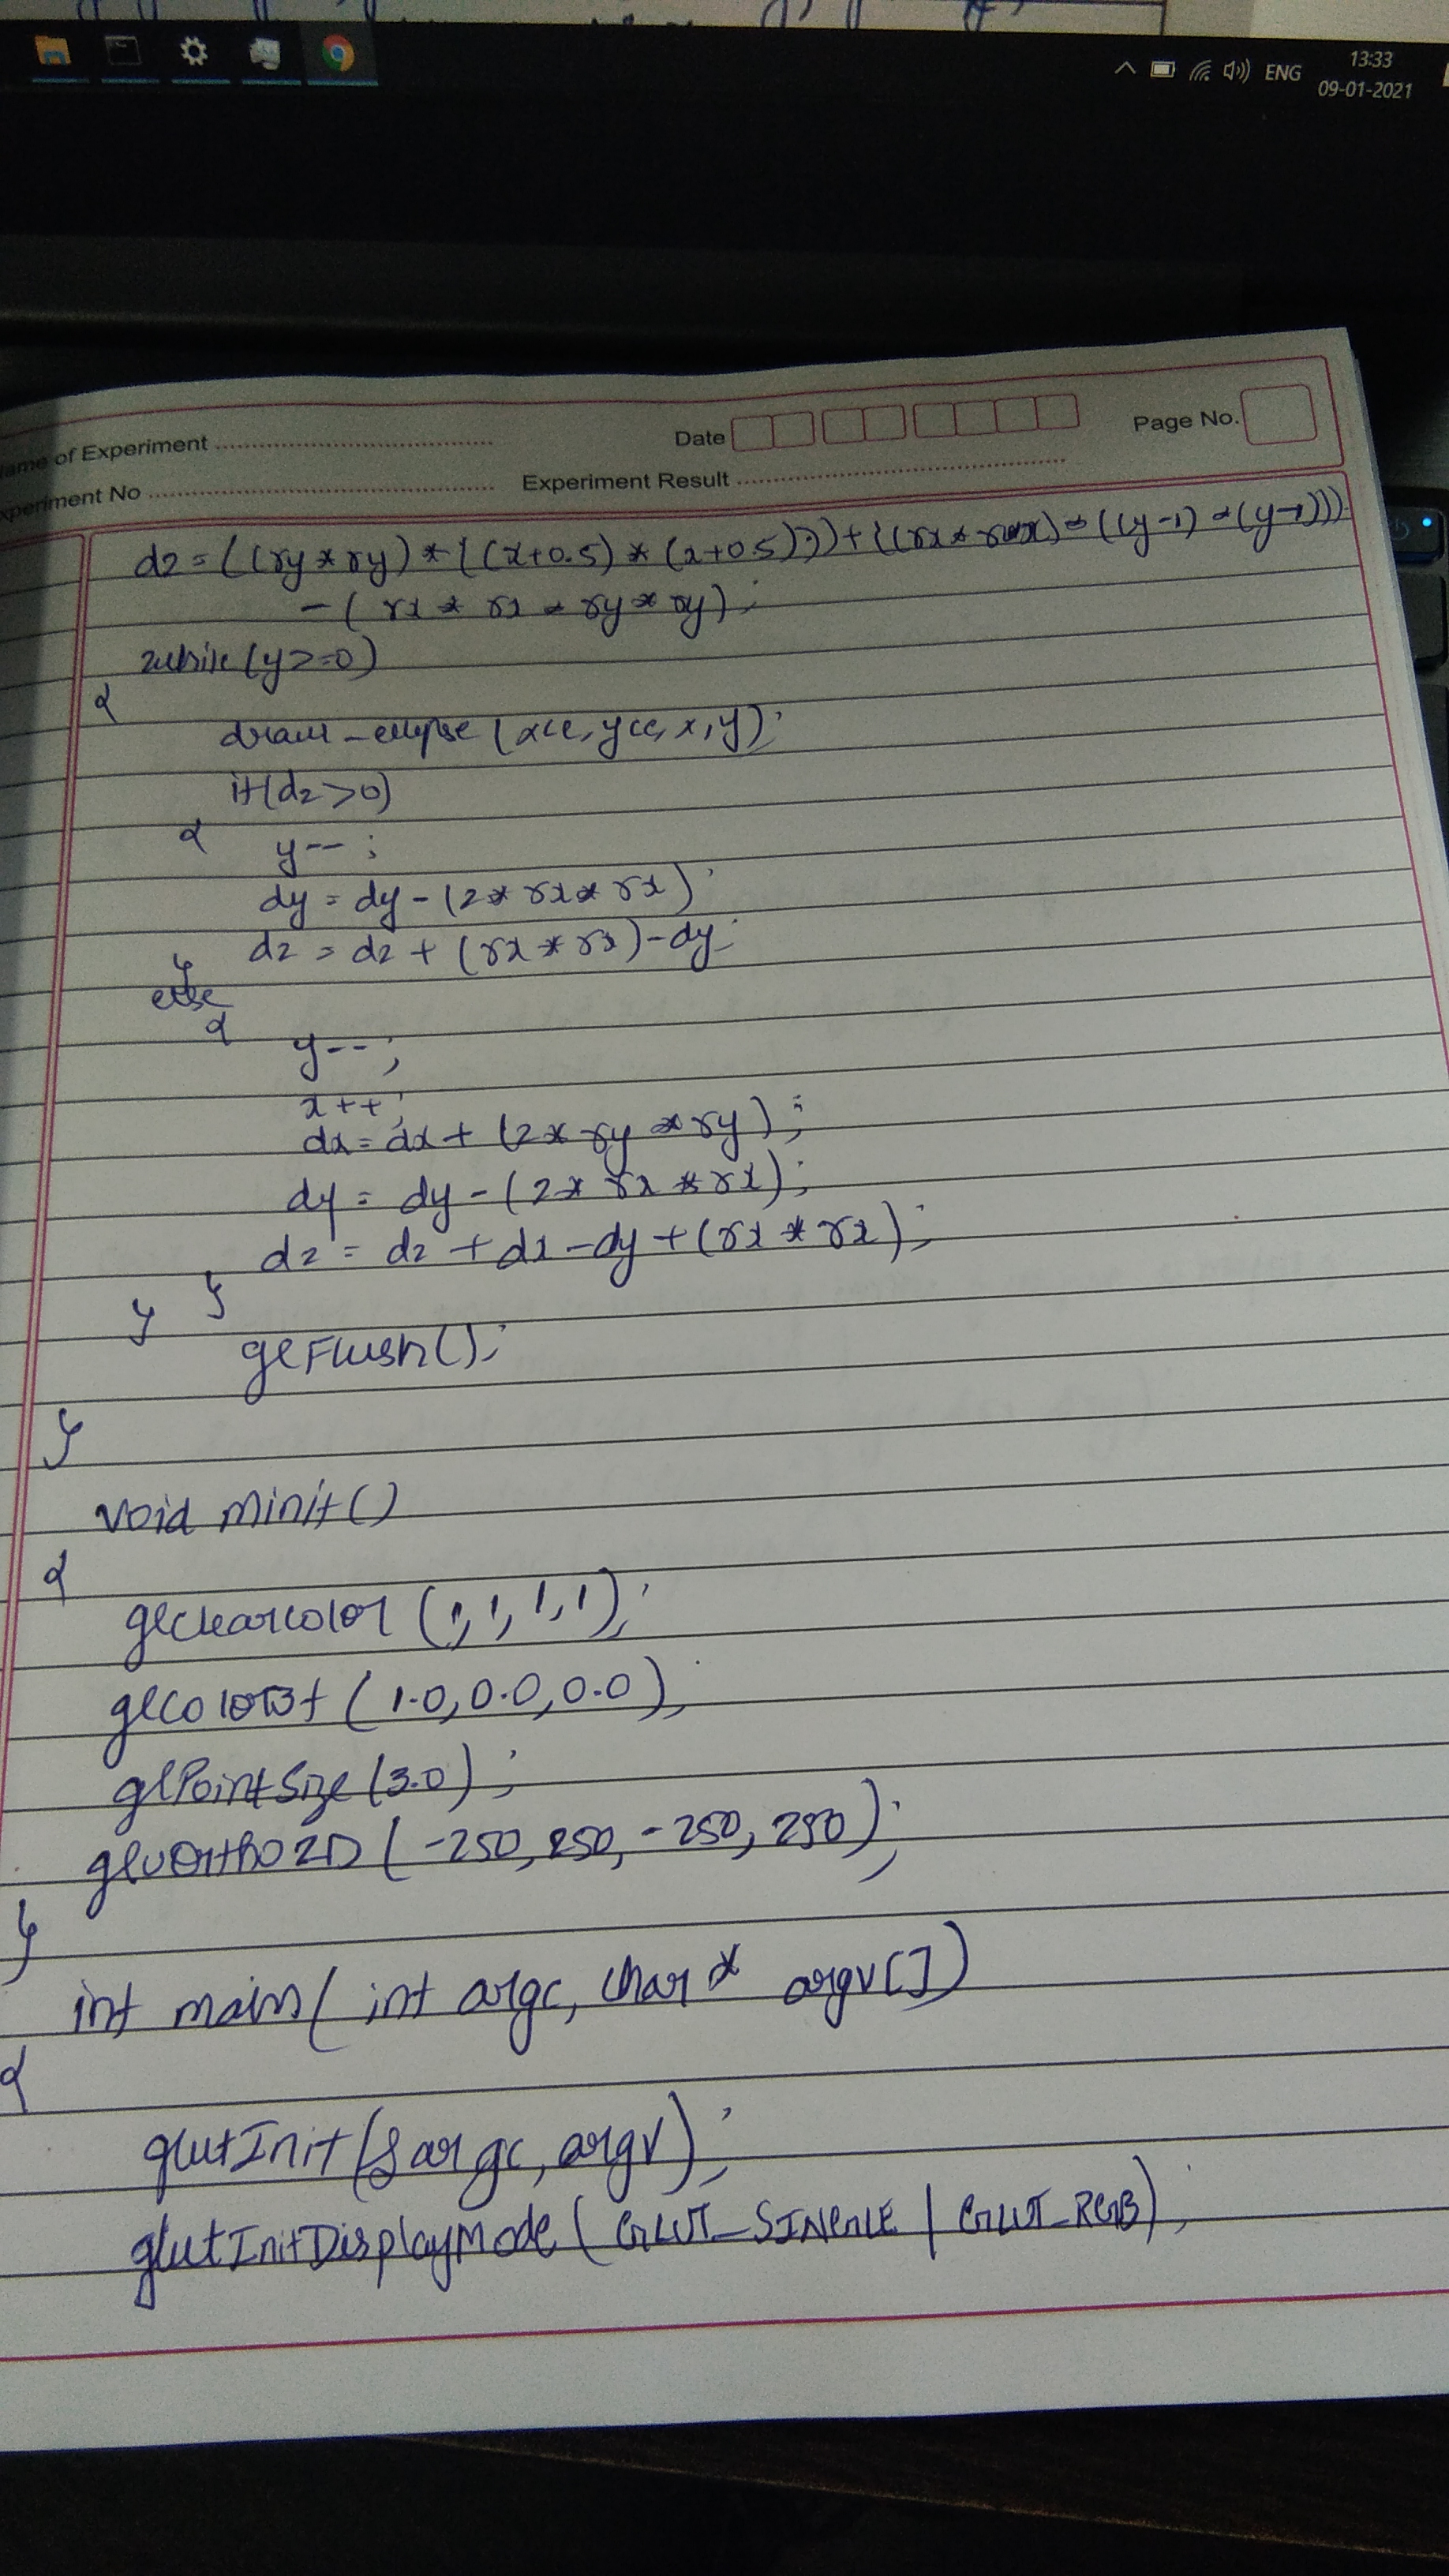 13:33
ENG
09-01-2021
Name of Experiment
Date
Page No.
Experiment No
Experiment Result
d2=((ry*ry)*((x+0.5)*(x+0.5)))+((rx*rx)*((y-1)*(y-1)))
-(rx*rx*ry*ry);
while(y>=0)
{
draw_ellipse(xce,yce,x,y);
if(d2>0)
{
y--;
dy=dy-(2*rx*rx);
d2=d2+(rx*rx)-dy;
}
else
{
y--;
x++;
dx=dx+(2*ry*ry);
dy=dy-(2*rx*rx);
d2=d2+dx-dy+(rx*rx);
} }
glFlush();
}
void minit()
{
glclearcolor(1,1,1,1);
glcolor3f(1.0,0.0,0.0);
glPointSize(3.0);
gluOrtho2D(-250,250,-250,250);
}
int main(int argc, char* argv[])
{
glutInit(&argc,argv);
glutInitDisplayMode(GLUT_SINGLE | GLUT_RGB);